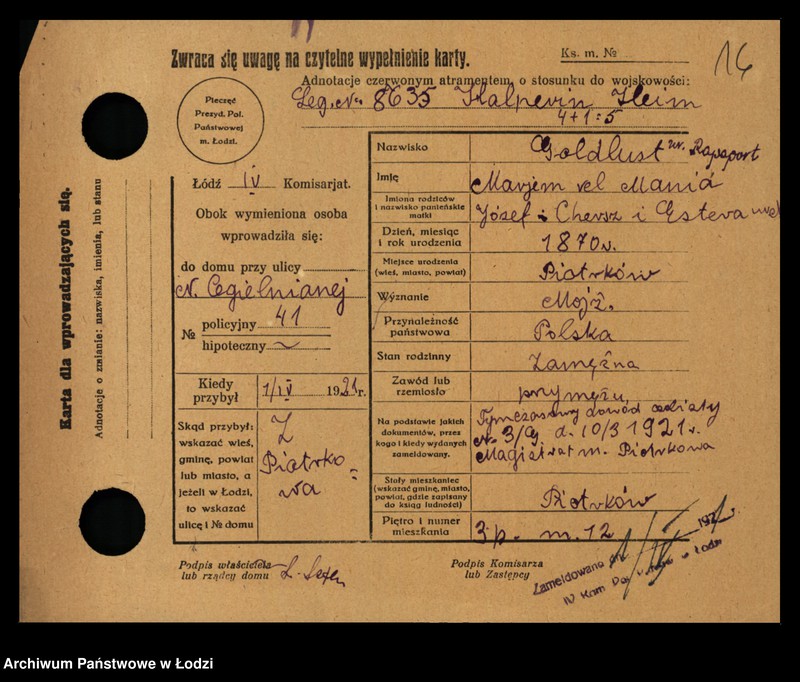 Zwraca się uwagę na czytelne wypełnienie karty.
Ks. m. №
16
Adnotacje czerwonym atramentem, o stosunku do wojskowości:
Leg. No 8635 Halpevin
4+1=5
Pieczęć
Prezyd. Pol.
Państwowej
m. Łodzi.
Karta dla wprowadzających się.
Adnotacje o zmianie: nazwiska, imienia, lub stanu
Łódź IV Komisarjat.
Obok wymieniona osoba
wprowadziła się:
do domu przy ulicy
N. Cegielnianej
№ policyjny 41
hipoteczny ~
Kiedy przybył 1/IV 1921 r.
Skąd przybył:
wskazać wieś,
gminę, powiat
lub miasto, a
jeżeli w Łodzi,
to wskazać
ulicę i № domu
Z
Piotrko=
wa
Nazwisko Goldlust ur. Rapaport
Imię Marjem vel Mania
Imiona rodziców
i nazwisko panieńskie
matki
Józef i Estera
Dzień, miesiąc
i rok urodzenia
1870 r.
Miejsce urodzenia
(wieś, miasto, powiat)
Piotrków
Wyznanie Mojż.
Przynależność
państwowa
Polska
Stan rodzinny Zamężna
Zawód lub
rzemiosło
przy mężu,
Na podstawie jakich
dokumentów, przez
kogo i kiedy wydanych
zameldowany.
Tymczasowy dowód
No 3/G. d. 10/3 1921 r.
Magistrat m. Piotrkowa
Stały mieszkaniec
(wskazać gminę, miasto,
powiat, gdzie zapisany
do ksiąg ludności)
Piotrków
Piętro i numer
mieszkania
3 p. m. 12
Podpis właściciela
lub rządcy domu
Podpis Komisarza
lub Zastępcy
Zameldowano dn. 192 r.
IV Kom. w Łodzi
Archiwum Państwowe w Łodzi